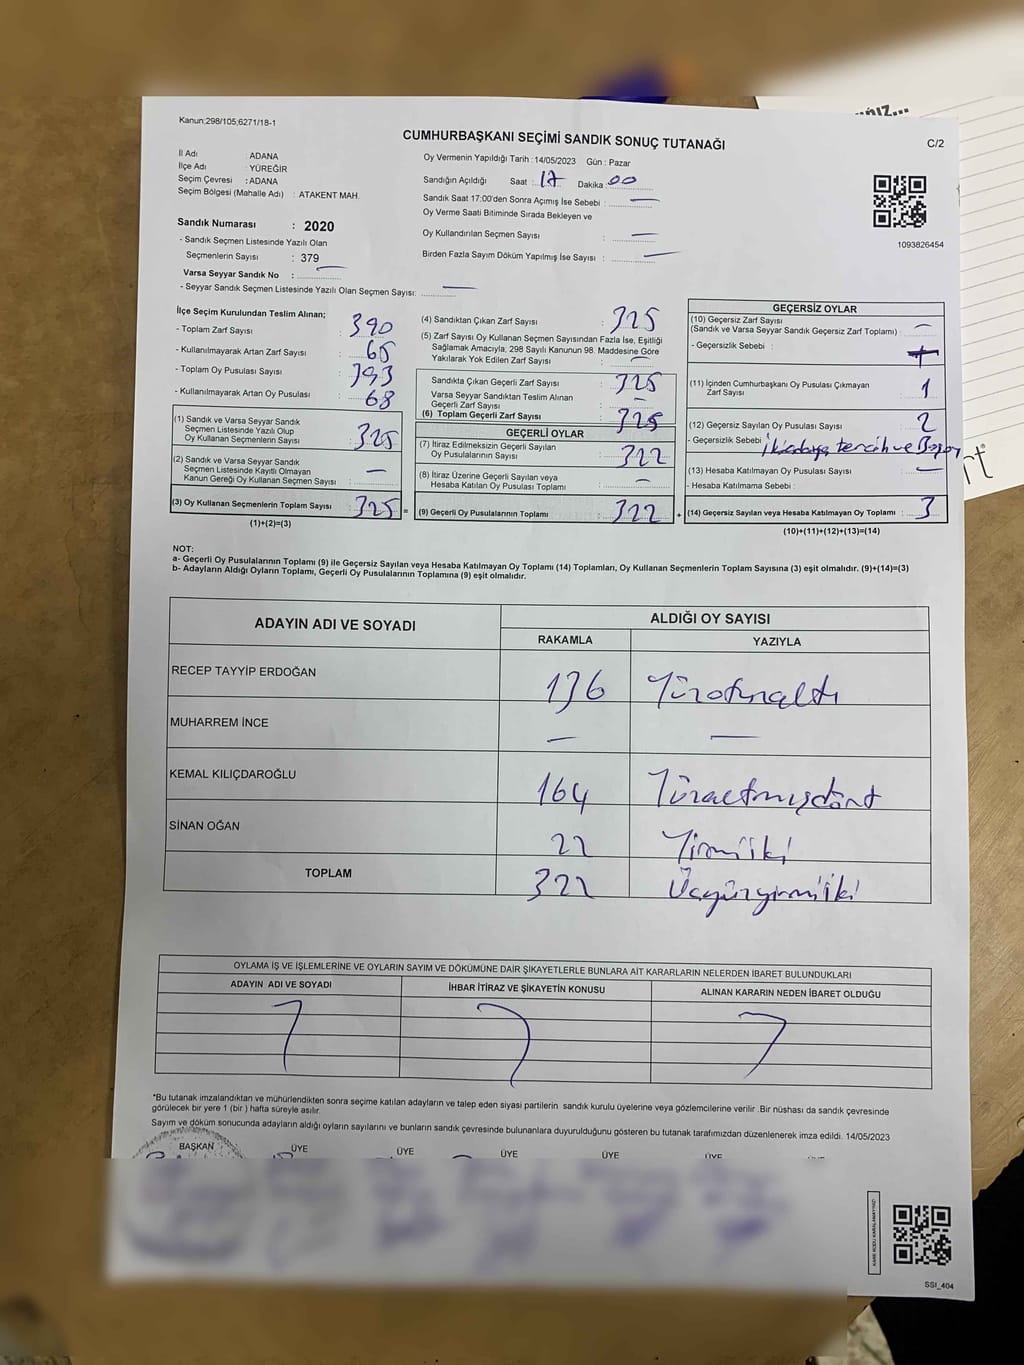 Kanun:298/105,6271/18-1
CUMHURBAŞKANI SEÇİMİ SANDIK SONUÇ TUTANAĞI
C/2
İl Adı : ADANA
İlçe Adı : YÜREĞİR
Seçim Çevresi : ADANA
Seçim Bölgesi (Mahalle Adı) : ATAKENT MAH.
Sandık Numarası : 2020
- Sandık Seçmen Listesinde Yazılı Olan
Seçmenlerin Sayısı : 379
Varsa Seyyar Sandık No : —
- Seyyar Sandık Seçmen Listesinde Yazılı Olan Seçmen Sayısı: —
Oy Vermenin Yapıldığı Tarih : 14/05/2023 Gün : Pazar
Sandığın Açıldığı Saat : 17 Dakika : 00
Sandık Saat 17:00'den Sonra Açımış İse Sebebi : —
Oy Verme Saati Bitiminde Sırada Bekleyen ve
Oy Kullandırılan Seçmen Sayısı : —
Birden Fazla Sayım Döküm Yapılmış İse Sayısı : —
1093826454
İlçe Seçim Kurulundan Teslim Alınan;
- Toplam Zarf Sayısı : 390
- Kullanılmayarak Artan Zarf Sayısı : 65
- Toplam Oy Pusulası Sayısı : 393
- Kullanılmayarak Artan Oy Pusulası : 68
(1) Sandık ve Varsa Seyyar Sandık
Seçmen Listesinde Yazılı Olup
Oy Kullanan Seçmenlerin Sayısı : 325
(2) Sandık ve Varsa Seyyar Sandık
Seçmen Listesinde Kayıtlı Olmayan
Kanun Gereği Oy Kullanan Seçmen Sayısı : —
(3) Oy Kullanan Seçmenlerin Toplam Sayısı : 325 =
(1)+(2)=(3)
(4) Sandıktan Çıkan Zarf Sayısı : 325
(5) Zarf Sayısı Oy Kullanan Seçmen Sayısından Fazla İse, Eşitliği
Sağlamak Amacıyla, 298 Sayılı Kanunun 98. Maddesine Göre
Yakılarak Yok Edilen Zarf Sayısı : —
Sandıkta Çıkan Geçerli Zarf Sayısı : 325
Varsa Seyyar Sandıktan Teslim Alınan
Geçerli Zarf Sayısı : —
(6) Toplam Geçerli Zarf Sayısı : 325
GEÇERLİ OYLAR
(7) İtiraz Edilmeksizin Geçerli Sayılan
Oy Pusulalarının Sayısı : 322
(8) İtiraz Üzerine Geçerli Sayılan veya
Hesaba Katılan Oy Pusulası Toplamı : —
(9) Geçerli Oy Pusulalarının Toplamı : 322 +
GEÇERSİZ OYLAR
(10) Geçersiz Zarf Sayısı
(Sandık ve Varsa Seyyar Sandık Geçersiz Zarf Toplamı) : —
- Geçersizlik Sebebi :
(11) İçinden Cumhurbaşkanı Oy Pusulası Çıkmayan
Zarf Sayısı : 1
(12) Geçersiz Sayılan Oy Pusulası Sayısı : 2
- Geçersizlik Sebebi : tercih ve
(13) Hesaba Katılmayan Oy Pusulası Sayısı : —
- Hesaba Katılmama Sebebi :
(14) Geçersiz Sayılan veya Hesaba Katılmayan Oy Toplamı : 3
(10)+(11)+(12)+(13)=(14)
NOT:
a- Geçerli Oy Pusulalarının Toplamı (9) ile Geçersiz Sayılan veya Hesaba Katılmayan Oy Toplamı (14) Toplamları, Oy Kullanan Seçmenlerin Toplam Sayısına (3) eşit olmalıdır. (9)+(14)=(3)
b- Adayların Aldığı Oyların Toplamı, Geçerli Oy Pusulalarının Toplamına (9) eşit olmalıdır.
ADAYIN ADI VE SOYADI
ALDIĞI OY SAYISI
RAKAMLA YAZIYLA
RECEP TAYYİP ERDOĞAN 136 Yüzotuzaltı
MUHARREM İNCE — —
KEMAL KILIÇDAROĞLU 164 Yüzaltmışdört
SİNAN OĞAN 22 Yirmiiki
TOPLAM 322 Üçyüzyirmiiki
OYLAMA İŞ VE İŞLEMLERİNE VE OYLARIN SAYIM VE DÖKÜMÜNE DAİR ŞİKAYETLERLE BUNLARA AİT KARARLARIN NELERDEN İBARET BULUNDUKLARI
ADAYIN ADI VE SOYADI İHBAR İTİRAZ VE ŞİKAYETİN KONUSU ALINAN KARARIN NEDEN İBARET OLDUĞU
*Bu tutanak imzalandıktan ve mühürlendikten sonra seçime katılan adayların ve talep eden siyasi partilerin sandık kurulu üyelerine veya gözlemcilerine verilir .Bir nüshası da sandık çevresinde
görülecek bir yere 1 (bir ) hafta süreyle asılır.
Sayım ve döküm sonucunda adayların aldığı oyların sayılarını ve bunların sandık çevresinde bulunanlara duyurulduğunu gösteren bu tutanak tarafımızdan düzenlenerek imza edildi. 14/05/2023
BAŞKAN ÜYE ÜYE ÜYE ÜYE ÜYE
SSI_404